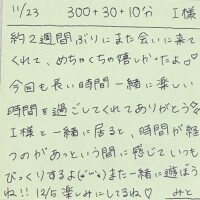 11/23 300+30+10分 I様
約2週間ぶりにまた会いに来て
くれて、めちゃくちゃ嬉しかったよ♡
今回も長い時間一緒に楽しい
時間を過ごしてくれてありがとう
I様と一緒に居ると、時間が経
つのがあっという間に感じていつも
びっくりするよ(๑°꒵°๑)また一緒に遊ぼう
ね!! 12/5 楽しみにしてるね♡ みと